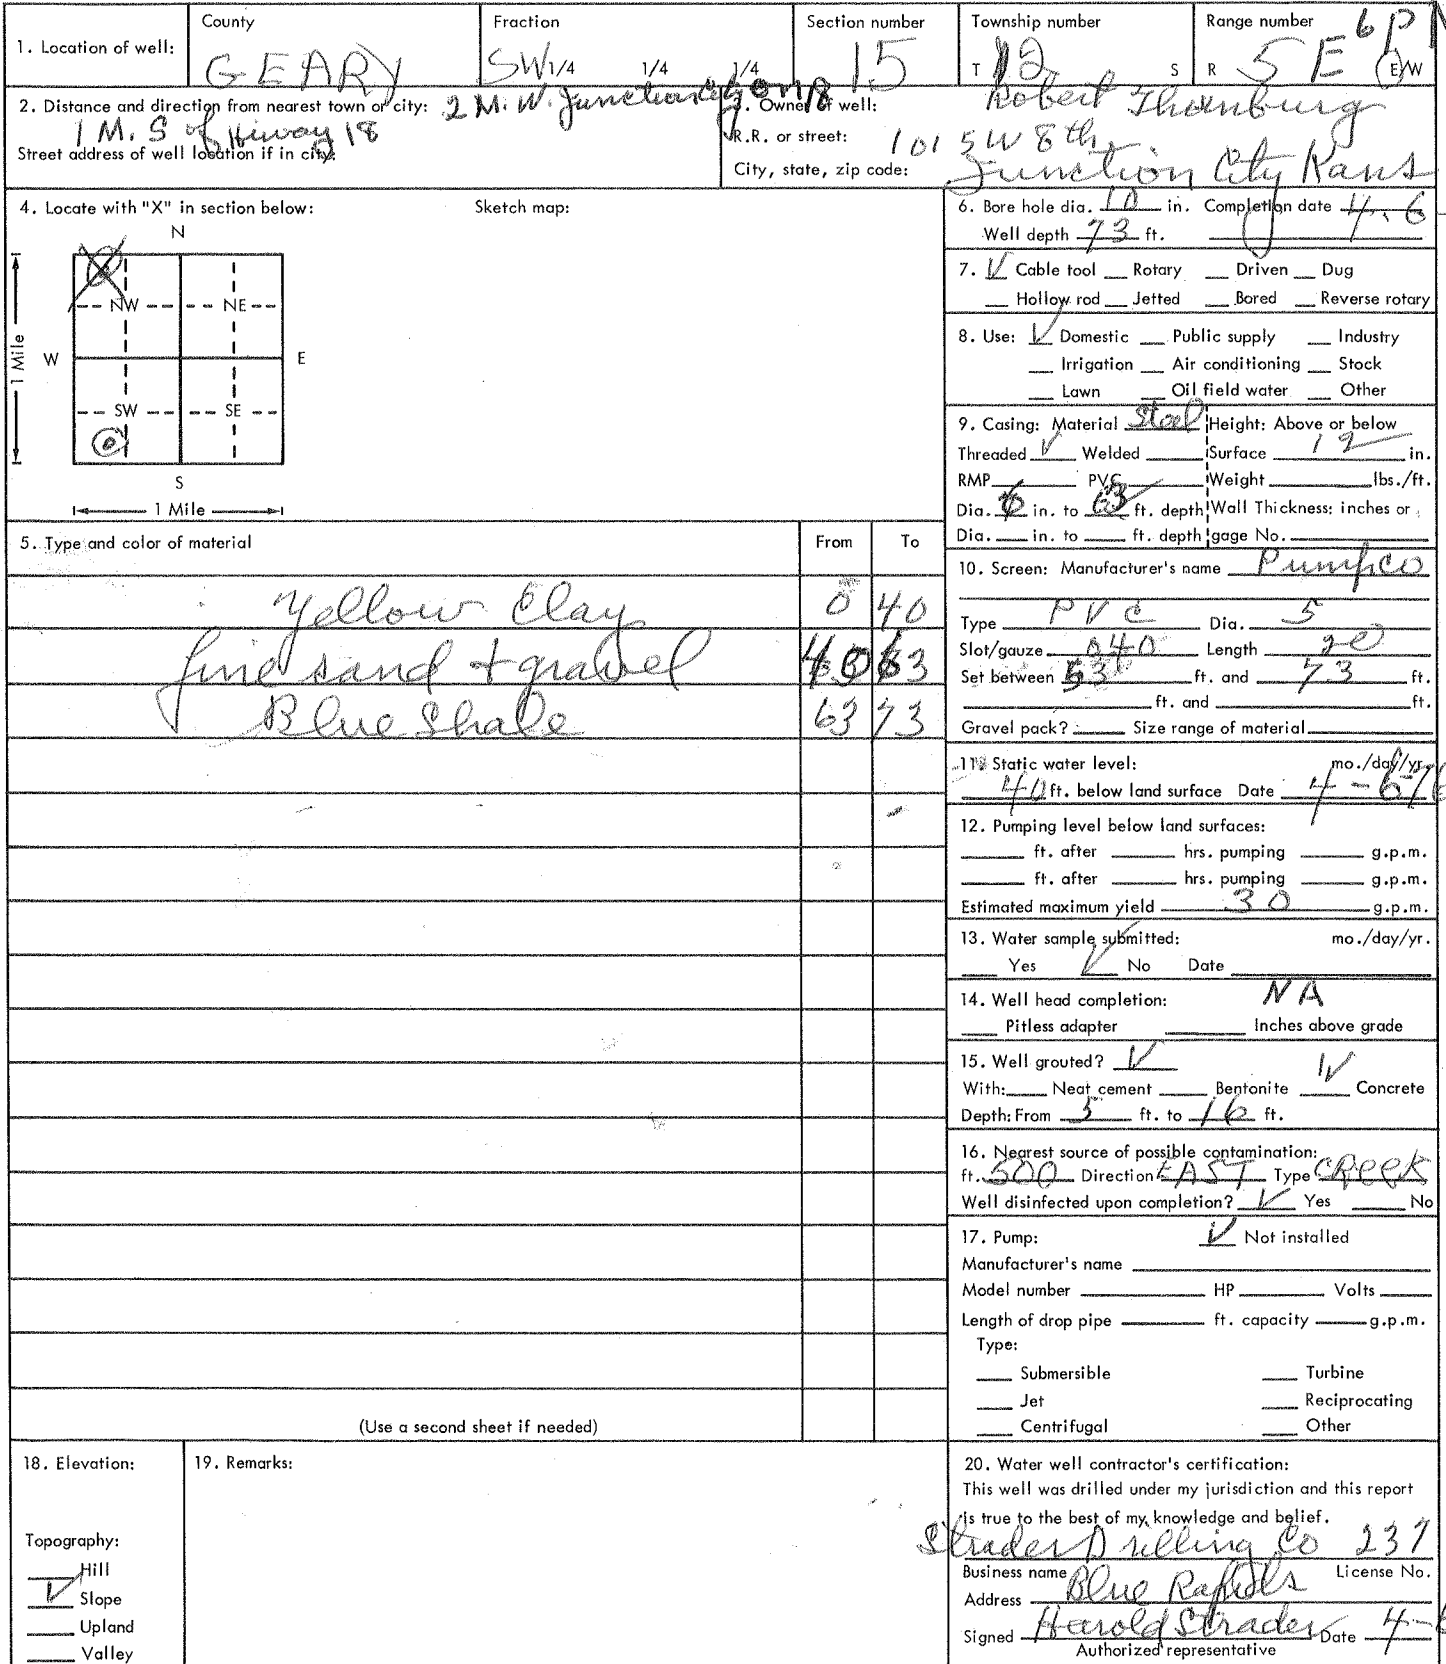 County Fraction Section number Township number Range number 6 P
1. Location of well: GEARY SW 1/4 1/4 1/4 15 T 12 S R 5 E E/W
2. Distance and direction from nearest town or city: 2 M. W. Junction City on 18
1 M. S of Hiway 18
Street address of well location if in city:
3. Owner of well: Robert Thornburg
R.R. or street: 1015 W 8th
City, state, zip code: Junction City Kans
4. Locate with "X" in section below: Sketch map:
N
NW NE
W E
1 Mile
SW SE
S
1 Mile
5. Type and color of material From To
Yellow Clay 0 40
fine sand + gravel 40 63
Blue Shale 63 73
(Use a second sheet if needed)
6. Bore hole dia. 10 in. Completion date 4-6
Well depth 73 ft.
7. ✓ Cable tool Rotary Driven Dug
Hollow rod Jetted Bored Reverse rotary
8. Use: ✓ Domestic Public supply Industry
Irrigation Air conditioning Stock
Lawn Oil field water Other
9. Casing: Material Steel Height: Above or below
Threaded ✓ Welded Surface 12 in.
RMP PVC Weight lbs./ft.
Dia. 6 in. to 63 ft. depth Wall Thickness: inches or
Dia. in. to ft. depth gage No.
10. Screen: Manufacturer's name Pumpco
Type PVC Dia. 5
Slot/gauze 040 Length 20
Set between 53 ft. and 73 ft.
ft. and ft.
Gravel pack? Size range of material
11. Static water level: mo./day/yr.
40 ft. below land surface Date 4-6-76
12. Pumping level below land surfaces:
ft. after hrs. pumping g.p.m.
ft. after hrs. pumping g.p.m.
Estimated maximum yield 30 g.p.m.
13. Water sample submitted: mo./day/yr.
Yes ✓ No Date
14. Well head completion: NA
Pitless adapter Inches above grade
15. Well grouted? ✓
With: Neat cement Bentonite ✓ Concrete
Depth: From 5 ft. to 16 ft.
16. Nearest source of possible contamination:
ft. 500 Direction EAST Type CREEK
Well disinfected upon completion? ✓ Yes No
17. Pump: ✓ Not installed
Manufacturer's name
Model number HP Volts
Length of drop pipe ft. capacity g.p.m.
Type:
Submersible Turbine
Jet Reciprocating
Centrifugal Other
18. Elevation:
Topography:
Hill
✓ Slope
Upland
Valley
19. Remarks:
20. Water well contractor's certification:
This well was drilled under my jurisdiction and this report
is true to the best of my knowledge and belief.
Strader Drilling Co 237
Business name License No.
Address Blue Rapids
Signed Harold Strader Date 4-6
Authorized representative